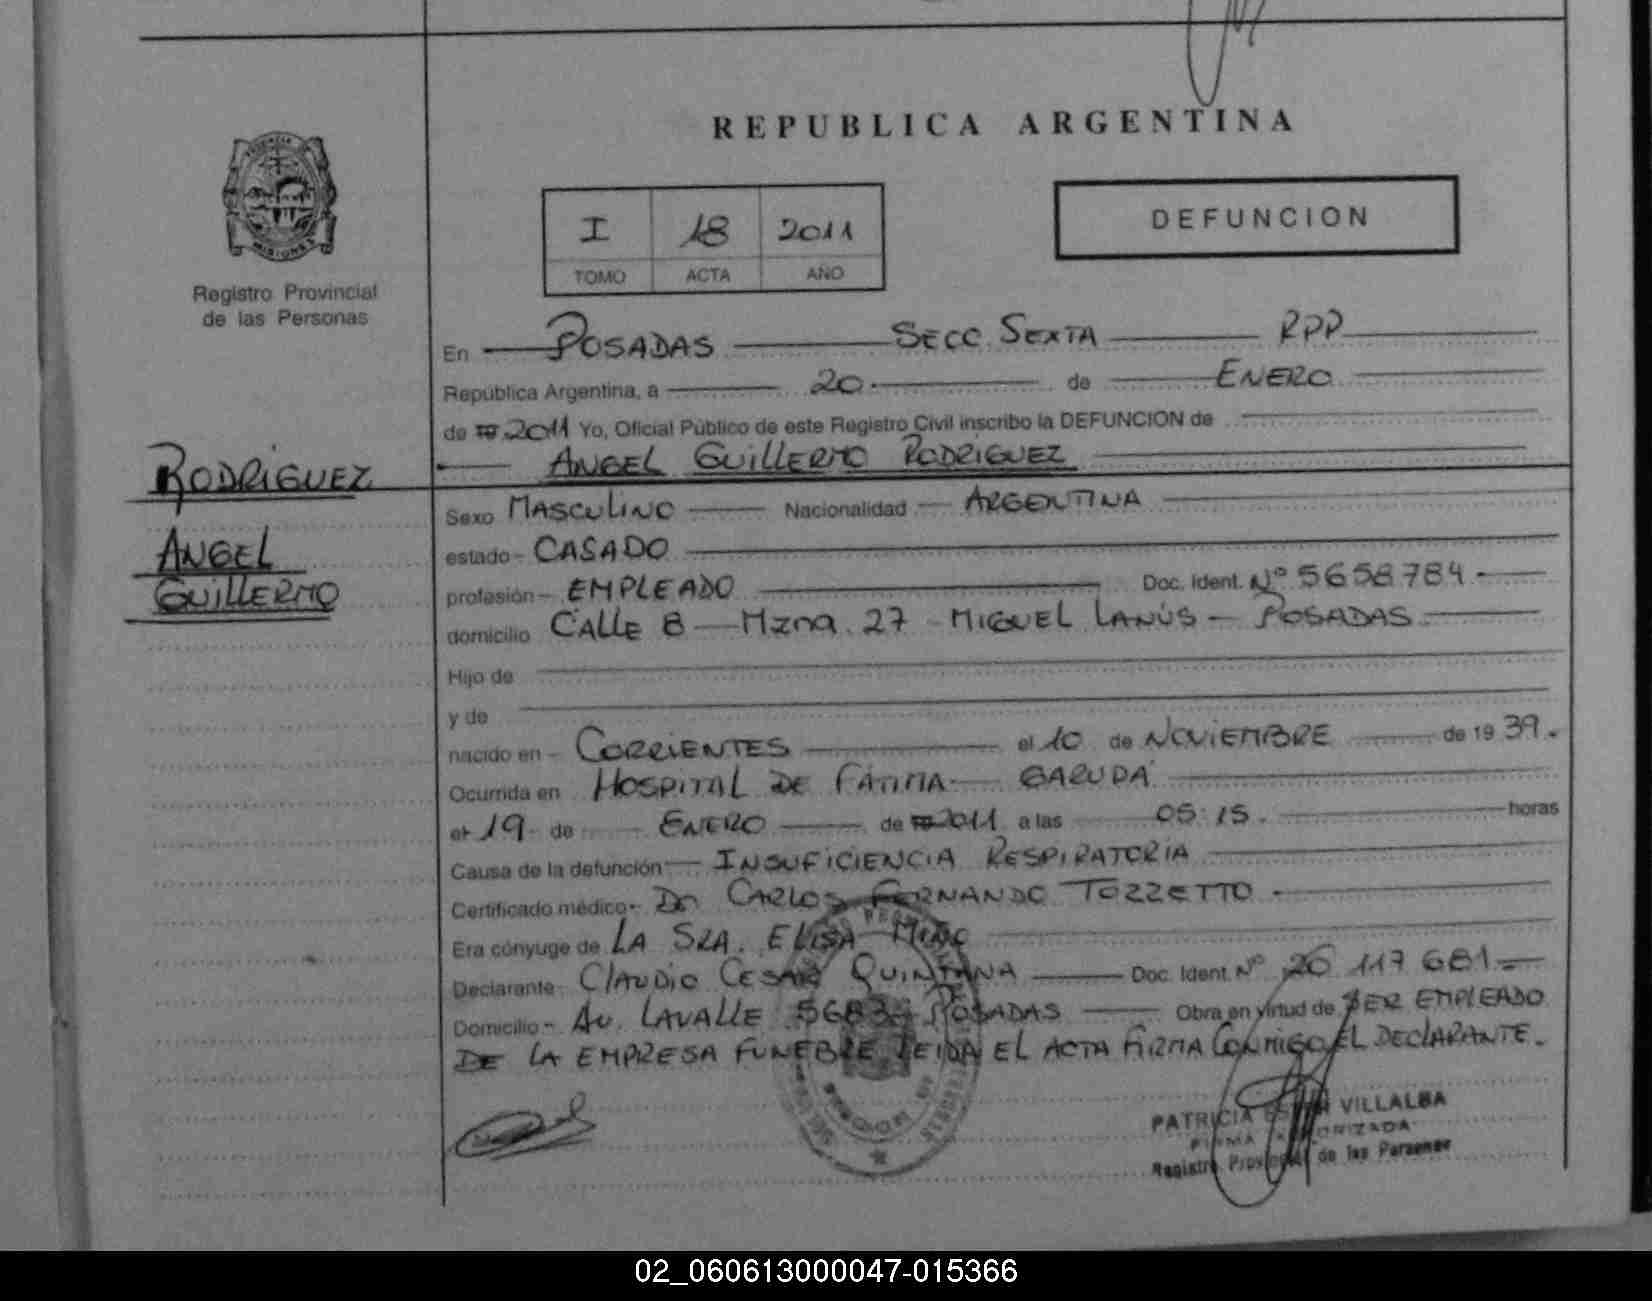 REPUBLICA ARGENTINA
PROVINCIA DE
MISIONES
Registro Provincial
de las Personas
I 18 2011
TOMO ACTA AÑO
DEFUNCION
En POSADAS SECC. SEXTA RPP
República Argentina, a 20 de ENERO
de 19 2011 Yo, Oficial Público de este Registro Civil inscribo la DEFUNCION de
ANGEL GUILLERMO RODRIGUEZ
RODRIGUEZ
ANGEL
GUILLERMO
Sexo MASCULINO Nacionalidad ARGENTINA
estado CASADO
profesión EMPLEADO Doc. Ident. Nº 5658784
domicilio CALLE 8 - Mzna. 27 - MIGUEL LANÚS - POSADAS
Hijo de
y de
nacido en CORRIENTES el 10 de NOVIEMBRE de 1939.
Ocurrida en HOSPITAL DE FATIMA - GARUPA
el 19 de ENERO de 19 2011 a las 05:15 horas
Causa de la defunción INSUFICIENCIA RESPIRATORIA
Certificado médico Dr CARLOS FERNANDO TOZZETTO
Era cónyuge de LA SRA. ELISA MIÑO
Declarante CLAUDIO CESAR QUINTANA Doc. Ident. Nº 26 117 681
Domicilio AV. LAVALLE 5683 - POSADAS Obra en virtud de SER EMPLEADO
DE LA EMPRESA FUNEBRE LEIDA EL ACTA FIRMA CONMIGO EL DECLARANTE.
PATRICIA ESTER VILLALBA
FIRMA AUTORIZADA
Registro Provincial de las Personas
02_060613000047-015366